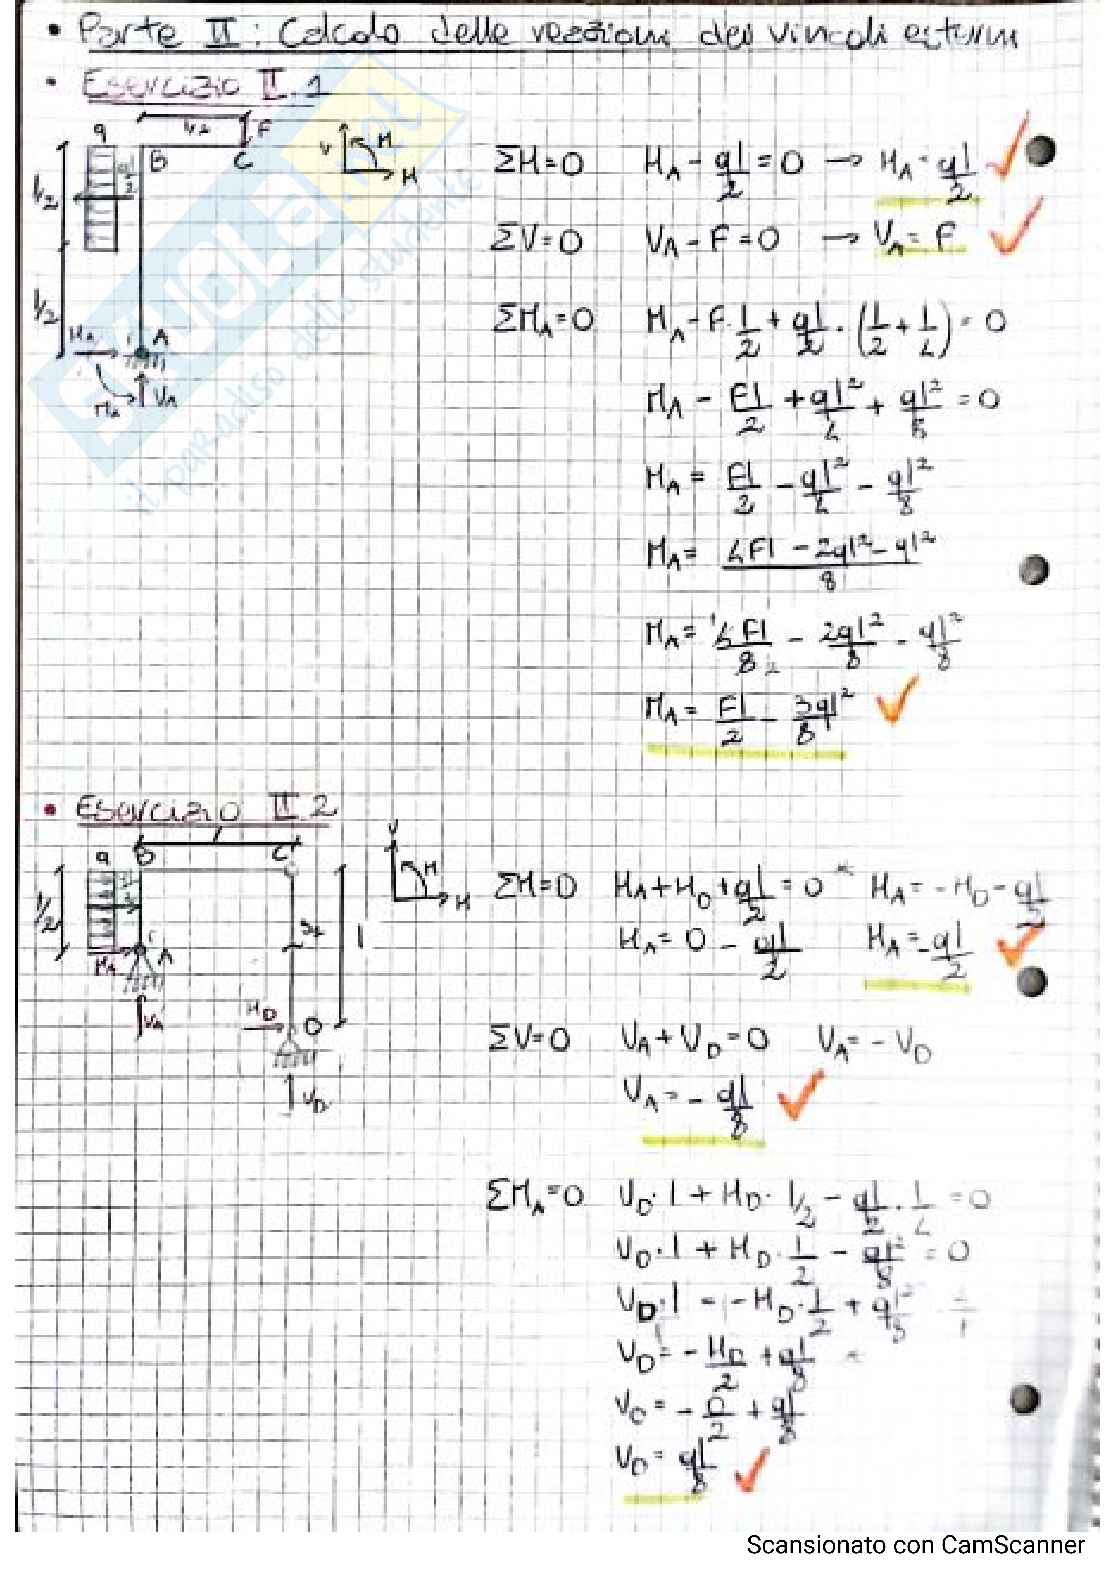 • Parte II: Calcolo delle reazioni dei vincoli esterni
• Esercizio II.1
q l/2 F
B C
V M H
l/2 ql/2
l/2
HA A
MA VA
ΣH=0 HA - ql/2 = 0 → HA = ql/2 ✓
ΣV=0 VA - F = 0 → VA = F ✓
ΣMA=0 MA - F · l/2 + ql/2 · (l/2 + l/4) = 0
MA - Fl/2 + ql²/4 + ql²/8 = 0
MA = Fl/2 - ql²/4 - ql²/8
MA = (4Fl - 2ql² - ql²)/8
MA = 4Fl/8 2 - 2ql²/8 - ql²/8
MA = Fl/2 - 3ql²/8 ✓
• Esercizio II.2
l
q B C
V M H
l/2 l
HA A
VA
HD D
VD
ΣH=0 HA + HD + ql/2 = 0 * HA = -HD - ql/2
HA = 0 - ql/2 HA = -ql/2 ✓
ΣV=0 VA + VD = 0 VA = - VD
VA = - ql/8 ✓
ΣMA=0 VD · l + HD · l/2 - ql/2 · l/4 = 0
VD · l + HD · l/2 - ql²/8 = 0
VD · l = -HD · l/2 + ql²/8
VD = - HD/2 + ql/8 *
VD = - 0/2 + ql/8
VD = ql/8 ✓
SKUOLA.net
il paradiso dello studente
Scansionato con CamScanner